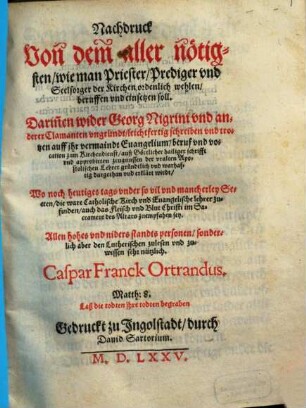 Nachdruck
Von dem aller nötig-
sten / wie man Priester / Prediger vnd
Seelsorger der Kirchen ordenlich wehlen /
beruffen vnd einsetzen soll.
Dariñen wider Georg Nigrini vnd an-
derer Clamanten vngründt / leichtfertig schreiben vnd tro-
tzen auff jhr vermaindt Euangelium / beruf vnd vo-
cation zum Kirchendienst / auß Göttlicher heiliger schrifft
vnd approbierten zeugnussen der vralten Apo-
stolischen Lehrer gründtlich vnd warhaff-
tig dargethan vnd erklärt wirdt /
Wo noch heutiges tags vnder so vil vnd mancherley Se-
cten / die ware Catholische Kirch vnd Euangelische lehrer zu-
finden / auch das Fleisch vnd Blut Christi im Sa-
crament des Altars zuempfahen sey.
Allen hohes vnd niders standts personen / sonder-
lich aber den Lutherischen zulesen vnd zu-
wissen sehr nützlich.
Caspar Franck Ortrandus.
Matth: 8.
Laß die todten jhre todten begraben
Gedruckt zu Ingolstadt / durch
Dauid Sartorium.
M. D. LXXV.